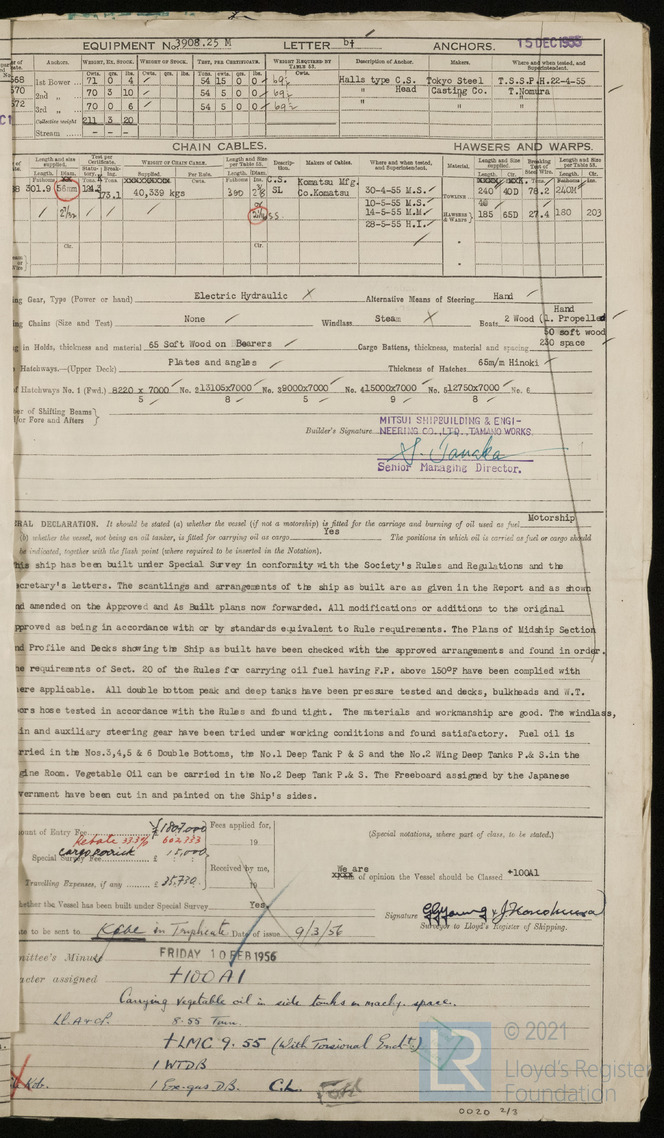 EQUIPMENT No. 3908.25 M LETTER b† ANCHORS. 15 DEC 1955
Anchors. Weight, Ex. Stock. Weight of Stock. Test, per Certificate. Weight Required by Table 53. Description of Anchor. Makers. Where and when tested, and Superintendent.
Cwts. qrs. lbs. Cwts. qrs. lbs. Tons. Cwts. qrs. lbs. Cwts.
568 1st Bower 71 0 4 54 15 0 0 69½ Halls type C.S. Tokyo Steel T.S.S.P.H.22-4-55
570 2nd „ 70 3 10 54 5 0 0 69½ " Head Casting Co. T.Nomura
572 3rd „ 70 0 6 54 5 0 0 69½ " " "
Collective weight 211 3 20
Stream - - -
CHAIN CABLES. HAWSERS AND WARPS.
Length and size supplied. Test per Certificate. Weight of Chain Cable. Length and Size per Table 53. Description. Makers of Cables. Where and when tested, and Superintendent. Material. Length and size supplied. Breaking Test of Steel Wire. Length and Size per Table 53.
Fathoms Diam. Supplied. Per Rule. Fathoms Diam. Length. Cir. Tons. Fathoms Ins.
301.9 56mm 124.3 173.1 40,339 kgs 300 C.S. SL Komatsu Mfg. Co.Komatsu 30-4-55 M.S. Towline 240 40D 78.2 240M
10-5-55 M.S.
14-5-55 M.M Hawsers & Warps 185 65D 27.4 180 203
28-5-55 H.I.
Cir. Cir.
ing Gear, Type (Power or hand) Electric Hydraulic X Alternative Means of Steering Hand
ing Chains (Size and Test) None Windlass Steam X Boats 2 Wood (1. Hand Propelled
g in Holds, thickness and material 65 Soft Wood on Bearers Cargo Battens, thickness, material and spacing 50 soft wood 230 space
Hatchways.—(Upper Deck) Plates and angles Thickness of Hatches 65m/m Hinoki
f Hatchways No. 1 (Fwd.) 8220 x 7000 No. 2 13105x7000 No. 3 9000x7000 No. 4 15000x7000 No. 5 12750x7000 No. 6
er of Shifting Beams 5 8 5 9 8
or Fore and Afters
Builder's Signature MITSUI SHIPBUILDING & ENGI-
NEERING CO., LTD., TAMANO WORKS.
Tanaka
Senior Managing Director.
RAL DECLARATION. It should be stated (a) whether the vessel (if not a motorship) is fitted for the carriage and burning of oil used as fuel Motorship
(b) whether the vessel, not being an oil tanker, is fitted for carrying oil as cargo Yes The positions in which oil is carried as fuel or cargo should
be indicated, together with the flash point (where required to be inserted in the Notation).
his ship has been built under Special Survey in conformity with the Society's Rules and Regulations and the
ecretary's letters. The scantlings and arrangements of the ship as built are as given in the Report and as shown
nd amended on the Approved and As Built plans now forwarded. All modifications or additions to the original
pproved as being in accordance with or by standards equivalent to Rule requirements. The Plans of Midship Section
nd Profile and Decks showing the Ship as built have been checked with the approved arrangements and found in order.
he requirements of Sect. 20 of the Rules for carrying oil fuel having F.P. above 150°F have been complied with
ere applicable. All double bottom peak and deep tanks have been pressure tested and decks, bulkheads and W.T.
ors hose tested in accordance with the Rules and found tight. The materials and workmanship are good. The windlass,
in and auxiliary steering gear have been tried under working conditions and found satisfactory. Fuel oil is
rried in the Nos.3,4,5 & 6 Double Bottoms, the No.1 Deep Tank P & S and the No.2 Wing Deep Tanks P.& S.in the
gine Room. Vegetable Oil can be carried in the No.2 Deep Tank P.& S. The Freeboard assigned by the Japanese
vernment have been cut in and painted on the Ship's sides.
ount of Entry Fee £1807,000 Fees applied for,
Rebate 33.3% 602,333 19 (Special notations, where part of class, to be stated.)
Cargo
Special Survey Fee £ 15,000
Received by me,
Travelling Expenses, if any £ 35,730 19 We are of opinion the Vessel should be Classed +100A1
hether the Vessel has been built under Special Survey Yes.
Signature
Surveyor to Lloyd's Register of Shipping.
te to be sent to Kobe in Triplicate Date of issue 9/3/56
mittee's Minute FRIDAY 10 FEB 1956
acter assigned +100A1
Carrying vegetable oil in side tanks in machy. space.
Ll. A & CP. 8.55
+LMC 9.55 (With Torsional Endt)
1 WTDB
Kob. 1 Ex-gas D.B. C.L.
© 2021
LR Lloyd's Register
Foundation
0020 2/3